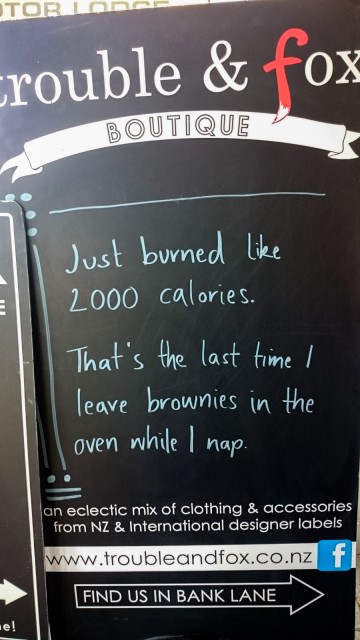 trouble & fox
BOUTIQUE
Just burned like
2000 calories.
That's the last time I
leave brownies in the
oven while I nap.
an eclectic mix of clothing & accessories
from NZ & International designer labels
www.troubleandfox.co.nz f
FIND US IN BANK LANE